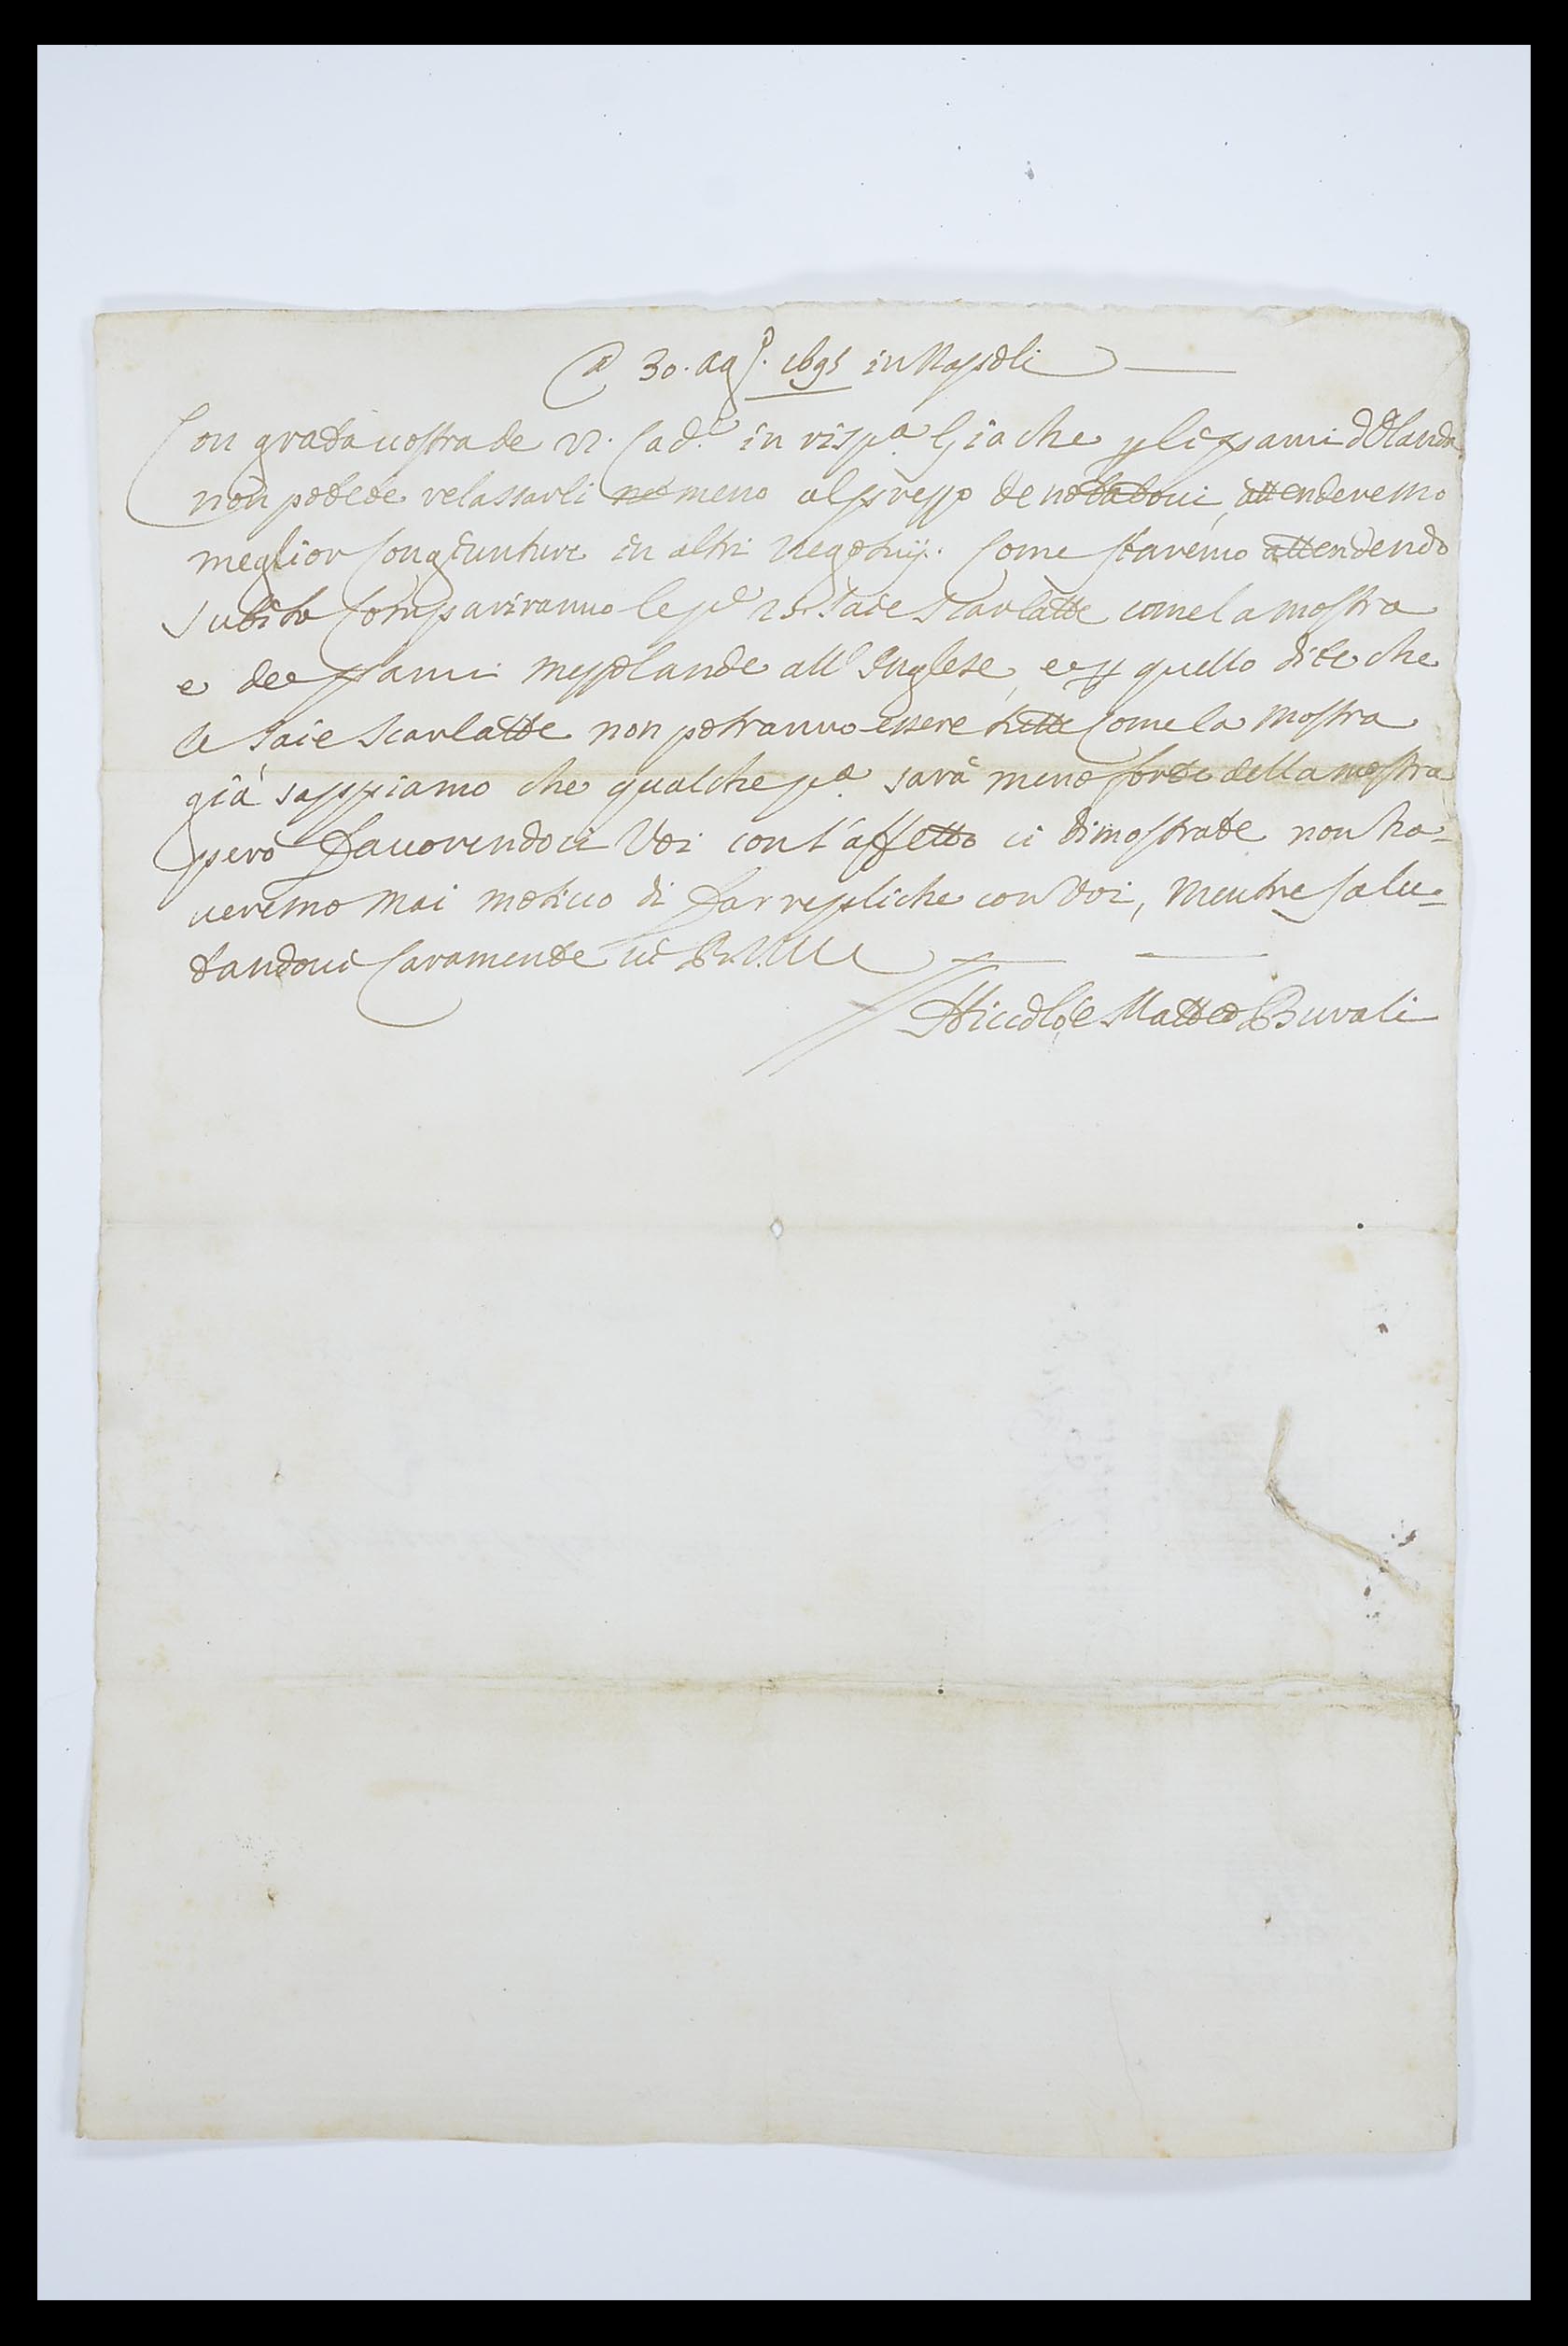 A 30. Agto. 1695 in Napoli
Con grata vostra de 21. Cade. in rispa. Gia che p li panni d'Olanda
non potete relassarli ne meno al prezzo denotatovi, attenderemo
meglior Congiunture in altri Negotij. Come staremo attendendo
subito Compariranno le pe 25. Saie scarlatte come la mostra
e de panni mezzolande all'Inglese, e p quello dite che
le saie scarlatte non potranno essere tutte Come la mostra
già sappiamo che qualche pa. sarà meno forte della mostra
però favorendoci Voi con l'affetto ci dimostrate non ha-
veremo mai motivo di far repliche con Voi, Mentre salu-
tandovi Caramente vi
Niccolò, e Matteo Buvali